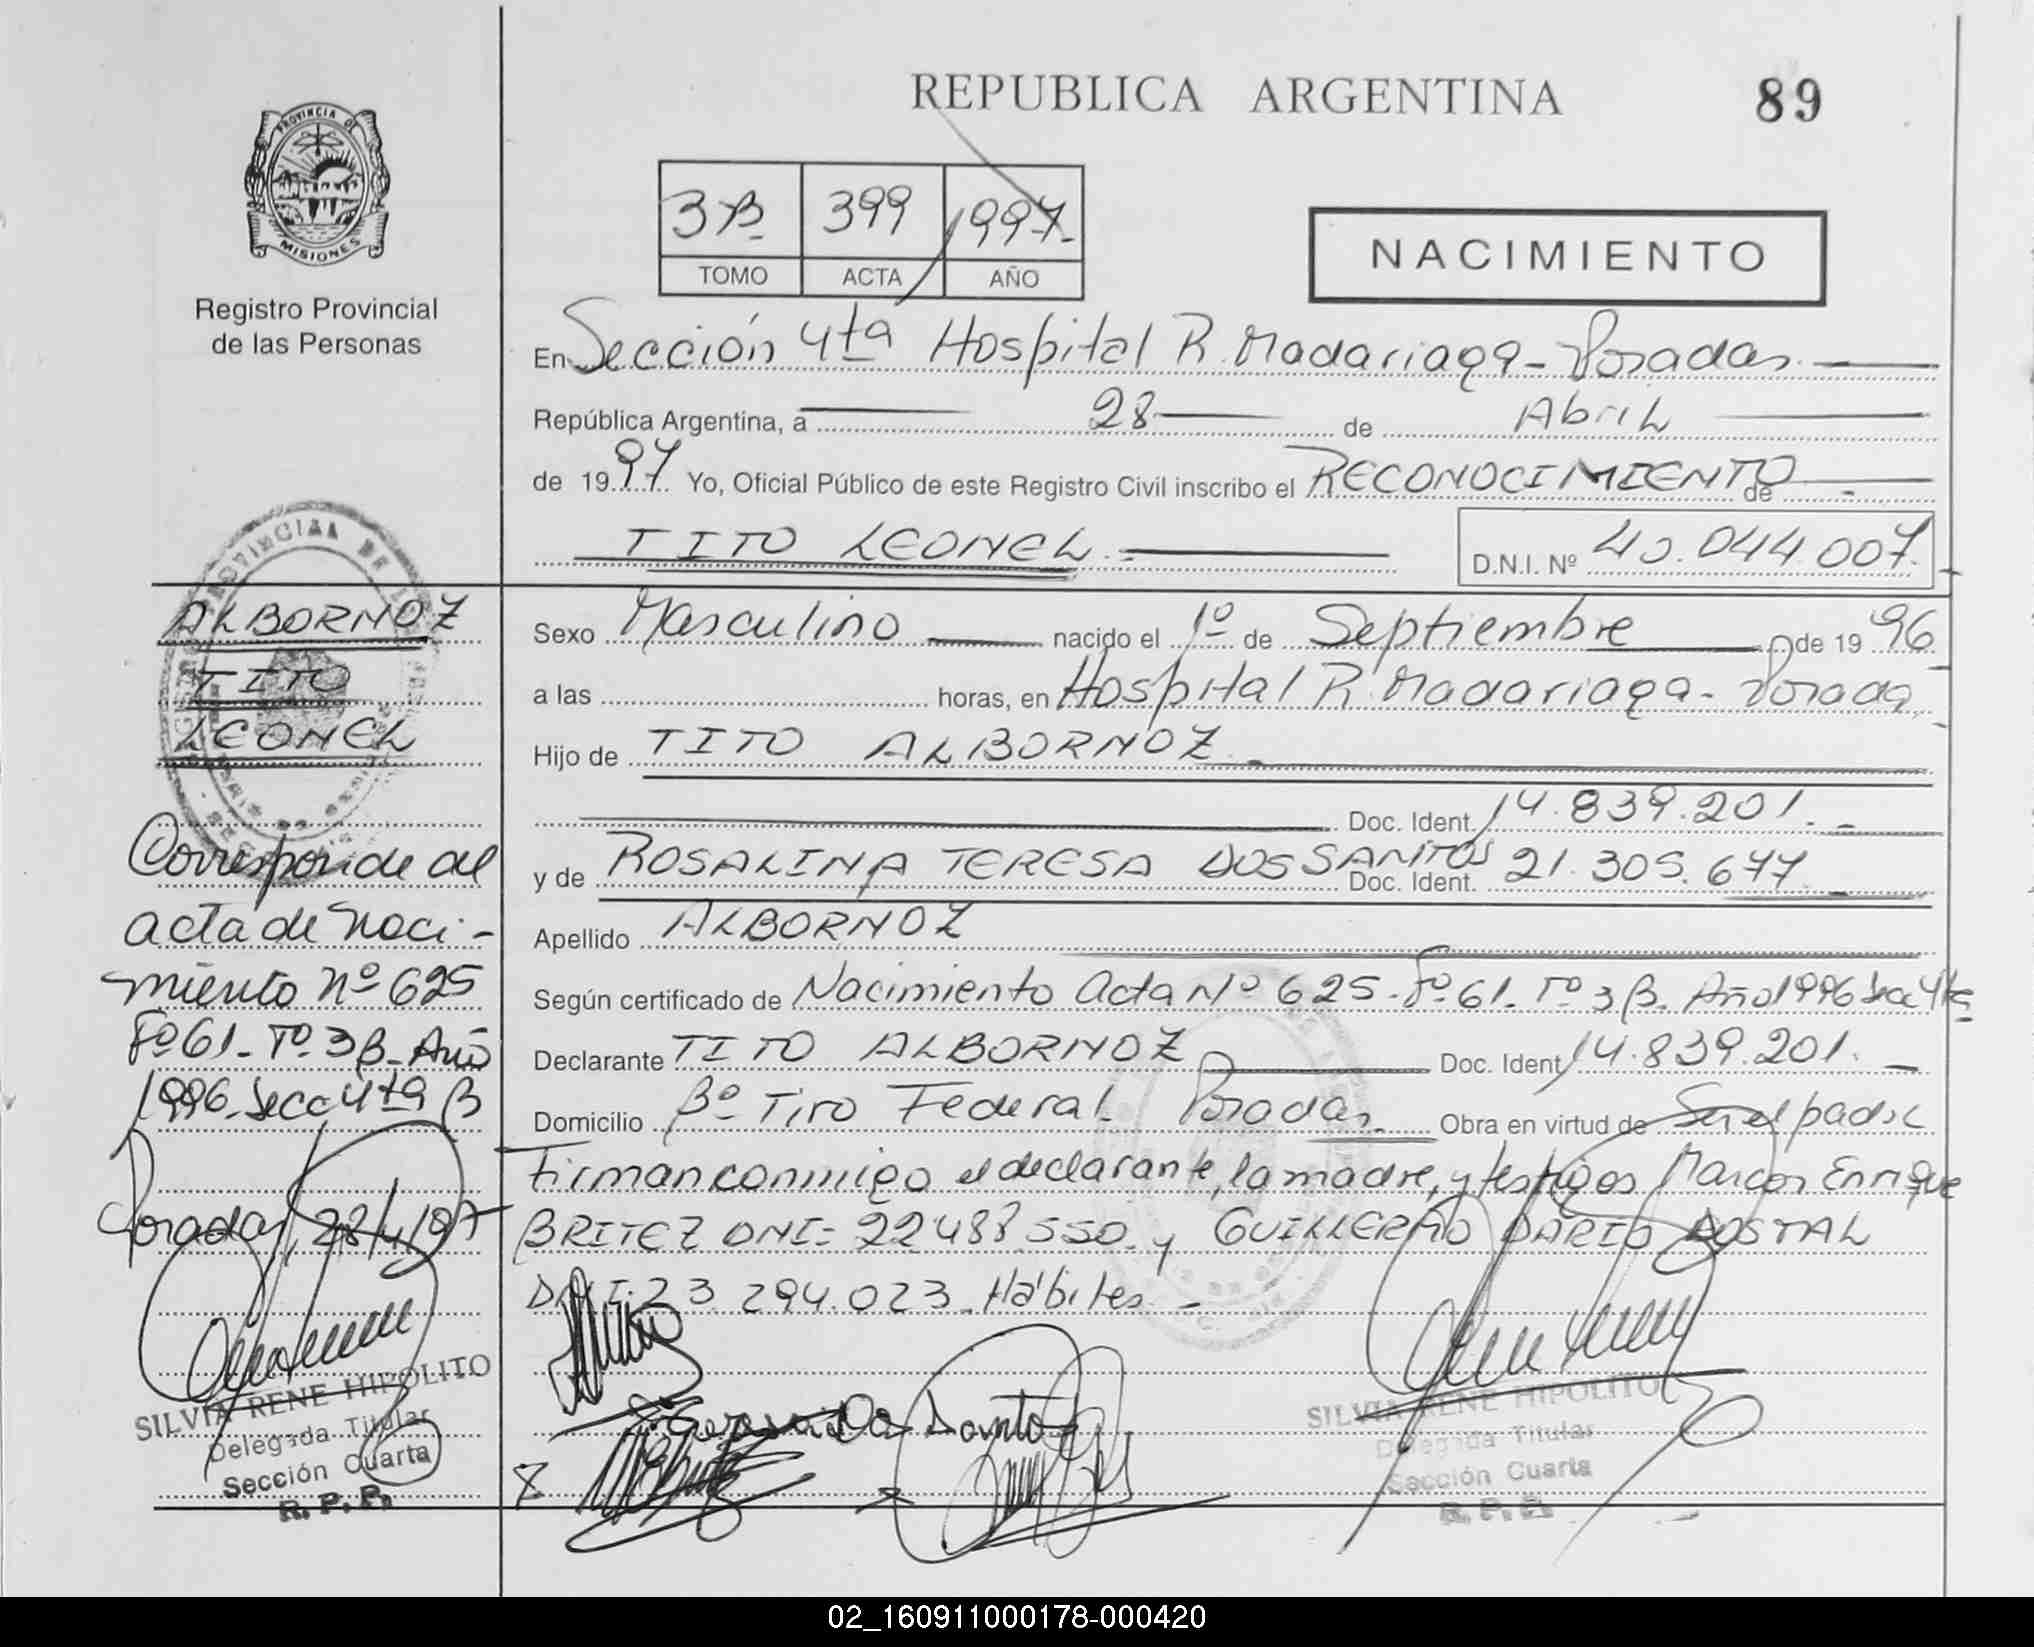 REPUBLICA ARGENTINA
89
PROVINCIA DE
MISIONES
Registro Provincial
de las Personas
3B 399 1997.
TOMO ACTA AÑO
NACIMIENTO
En Sección 4ta Hospital R. Madariaga - Posadas.
República Argentina, a 28 de Abril
de 1997 Yo, Oficial Público de este Registro Civil inscribo el RECONOCIMIENTO de
TITO LEONEL. D.N.I. Nº 40.044.007.
ALBORNOZ
TITO
LEONEL
Corresponde al
acta de naci-
miento nº 625
Fº 61- Tº. 3B- Año
1996. Secc 4ta B
Posadas, 28/4/97
SILVIA RENE HIPOLITO
Delegada Titular
Sección Cuarta
R. P. P.
Sexo Masculino nacido el 1º de Septiembre de 1996
a las horas, en Hospital R. Madariaga - Posadas
Hijo de TITO ALBORNOZ
Doc. Ident. 14.839.201.
y de ROSALINA TERESA DOS SANTOS Doc. Ident. 21.305.677.
Apellido ALBORNOZ
Según certificado de Nacimiento Acta Nº 625- Fº 61- Tº 3B. Año 1996 Secc 4ta
Declarante TITO ALBORNOZ Doc. Ident 14.839.201.
Domicilio Bº Tiro Federal Posadas. Obra en virtud de Ser el padre
Firman conmigo el declarante, la madre, y testigos Marcos Enrique
BRITEZ DNI: 22.488.550. y GUILLERMO DARIO DOSTAL
DNI: 23.294.023. Hábiles.
SILVIA RENE HIPOLITO
Delegada Titular
Sección Cuarta
R. P. P.
02_160911000178-000420